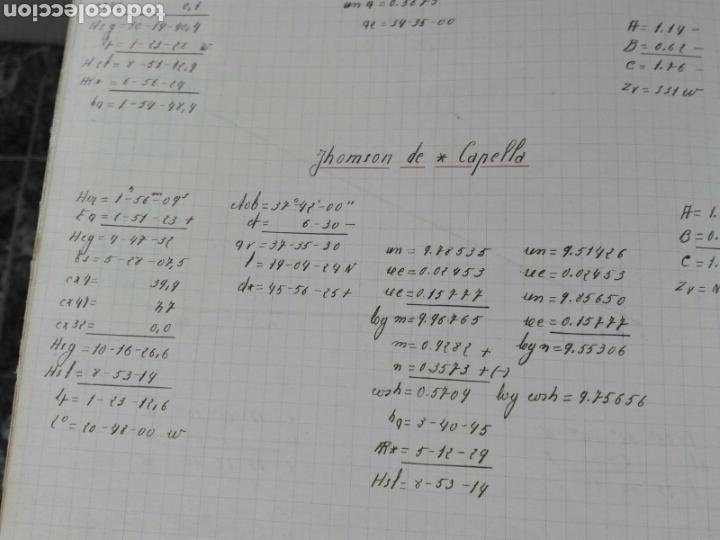 todocoleccion
0,1
Hcg = 10-14-40,9
lt = 1-23-22 W
Hsl = 8-51-12,9
ARx = 6-56-24
hq = 1-54-48,4
un a = 0.3673
ae = 34-35-00
A = 1.14 -
B = 0.62 -
C = 1.76 -
Zv = S31W
Jhomson de * Capella
Hcq = 1ʰ-56ᵐ-09ˢ
Eq = 2-51-23 +
Hcg = 4-47-32
Rs = 5-28-07,5
cx4 = 39,9
cx41 = 7,7
cx32 = 0,0
Hcg = 10-16-26,6
Hsl = 8-53-14
lt = 1-23-12,6
L° = 20-48-00 W
Aob = 37°-42'-00"
d = 6-30 -
av = 37-35-30
l = 19-04-24 N
dx = 45-56-25 +
un = 9.78535
ue = 0.02453
ue = 0.15777
log m = 9.96765
m = 0.9282 +
n = 0.3573 + (-)
cosh = 0.5709
hq = 3-40-45
ARx = 5-12-29
Hsl = 8-53-14
un = 9.51426
ue = 0.02453
un = 9.85650
ue = 0.15777
log n = 9.55306
log cosh = 9.75656
A = 1.
B = 0.
C = 1.
Zv = N